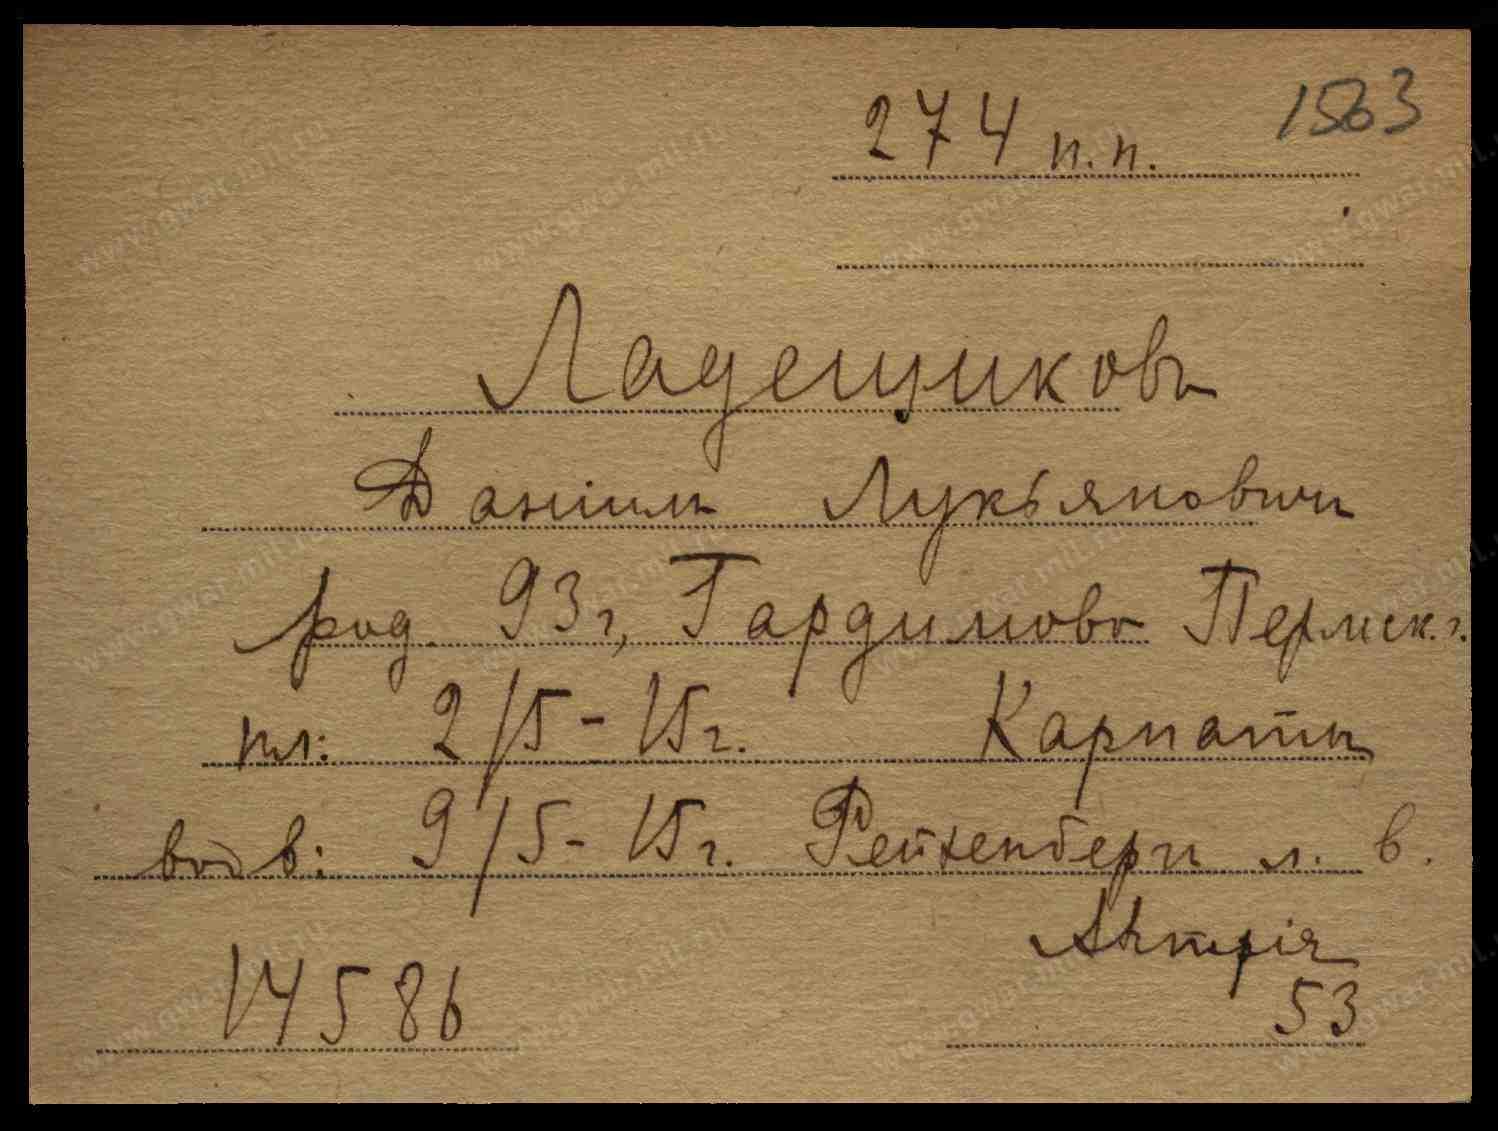 1563
274 п.п.
Ладещиковъ
Даніилъ Лукьяновичъ
род. 93 г, Гардимово Пермск. г.
пл: 2/5 - 15 г. Карпаты
водв: 9/5 - 15 г. Рейхенбергъ л. в.
Австрія
14586 53